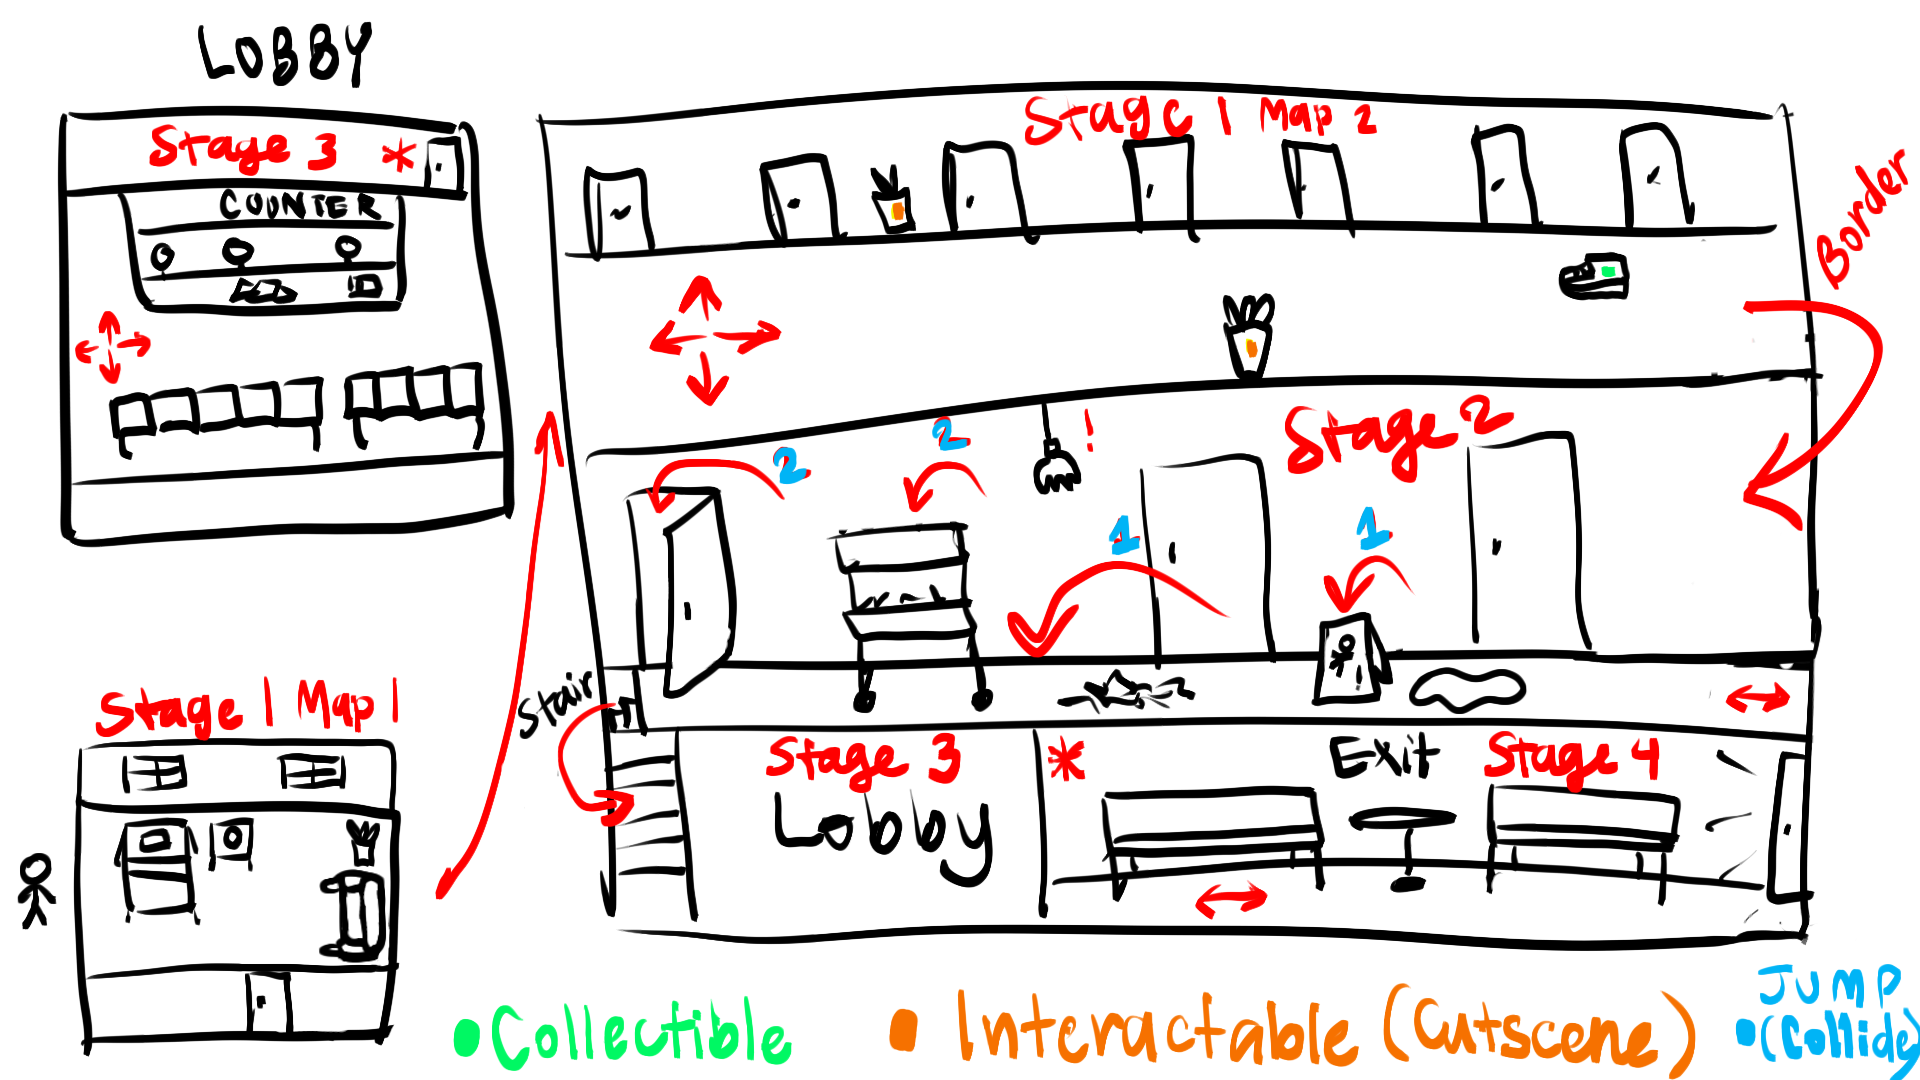 LOBBY
Stage 3 *
COUNTER
Stage 1 Map 2
Border
Stage 2
!
2
2
1
1
Stage 1 Map 1
Stair
Stage 3
Lobby
*
Exit
Stage 4
• Collectible
• Interactable (Cutscene)
JUMP
• (Collide)